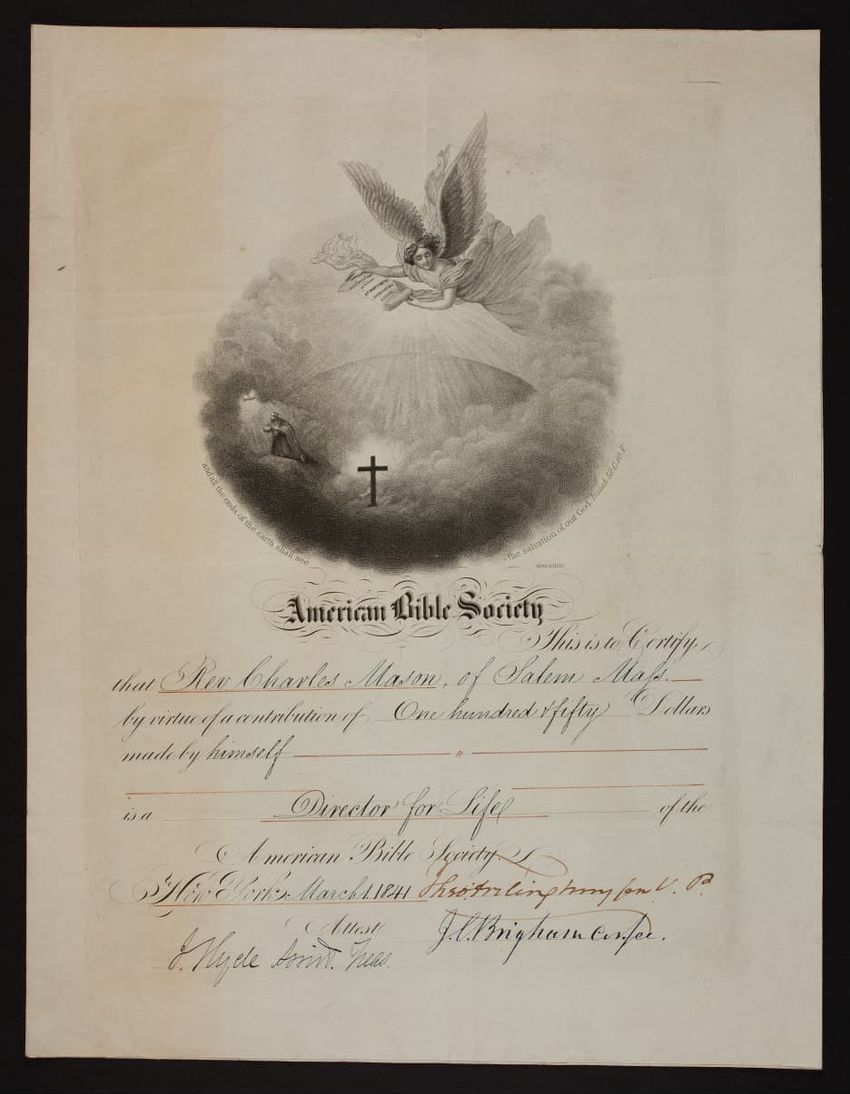 and all the ends of the earth shall see
the salvation of our God Isaiah 52.C.10.V.
American Bible Society
This is to Certify,
that Rev Charles Mason, of Salem Mass.
by virtue of a contribution of One hundred & fifty Dollars
made by himself "
is a Director for Life of the
American Bible Society.
New York, March 1. 1841 V. P.
Attest
J. C. Brigham Cor. Sec.
J. Hyde Assist. Treas.